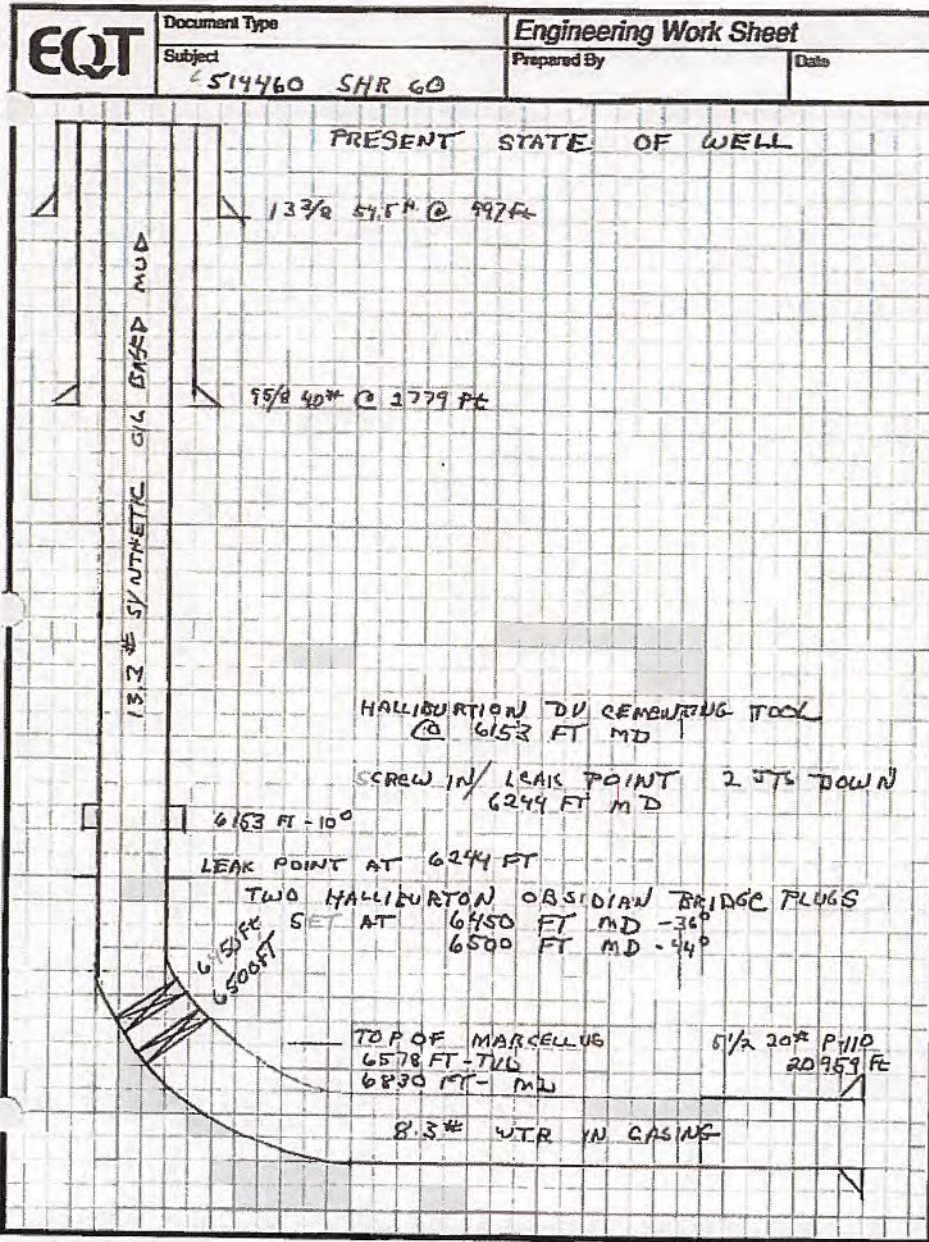 EQT
Document Type
Engineering Work Sheet
Subject
514460 SHR 60
Prepared By
Date
PRESENT STATE OF WELL
13 3/8 54.5# @ 997 ft
9 5/8 40# @ 2779 ft
13.2 # SYNTHETIC OIL BASED MUD
HALLIBURTION DV CEMENTING TOOL
@ 6153 FT MD
SCREW IN/ LEAK POINT 2 JTS DOWN
6244 FT MD
6153 FT - 10°
LEAK POINT AT 6244 FT
TWO HALLIBURTON OBSIDIAN BRIDGE PLUGS
SET AT 6450 FT MD -36°
6500 FT MD -44°
6450 Ft
6500 FT
TOP OF MARCELLUS
6578 FT - TVD
6830 FT - MD
5 1/2 20# P110
20959 Ft
8.3 # WTR IN CASING